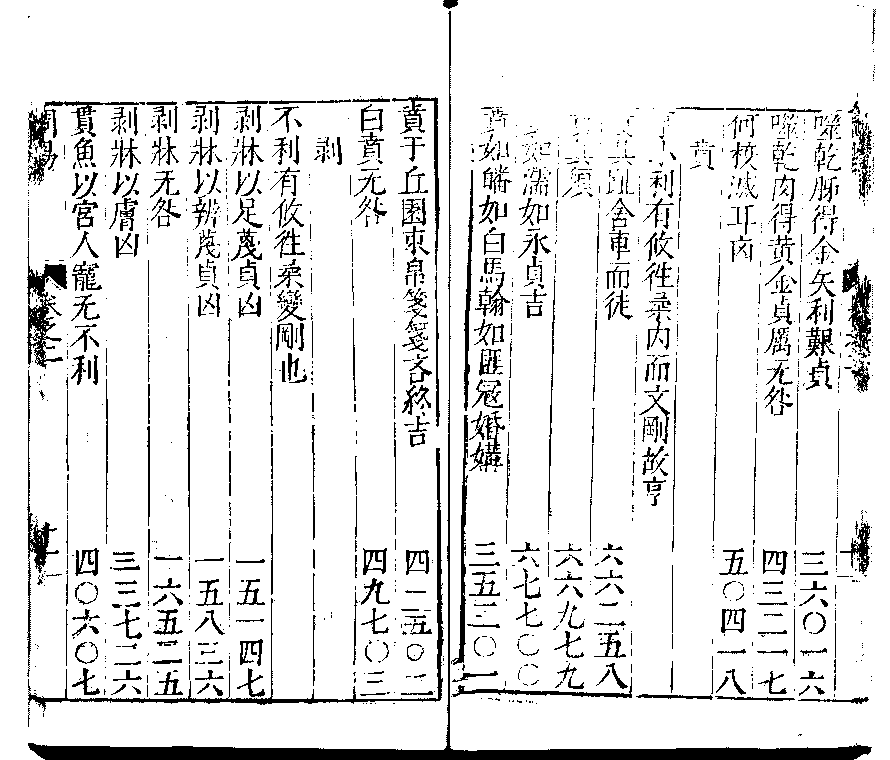 噬乾胏得金矢利艱貞 三六〇一六
噬乾肉得黄金貞厲无咎 四三二一七
何校滅耳凶 五〇四一八
賁
小利有攸徃柔内而文剛故亨
其趾舍車而徒 六六二五八
其須 六六九七九
如濡如永貞吉 六七七〇〇
賁如皤如白馬翰如匪冦婚媾 三五三〇一
賁于丘園束帛箋箋吝終吉 四二五〇二
白賁无咎 四九七〇三
剥
不利有攸徃柔變剛也
剥牀以足蔑貞凶 一五一四七
剥牀以辨蔑貞凶 一五八三六
剥牀无咎 一六五二五
剥牀以膚凶 三三七二六
貫魚以宮人寵无不利 四〇六〇七
周易 卷之二 十一